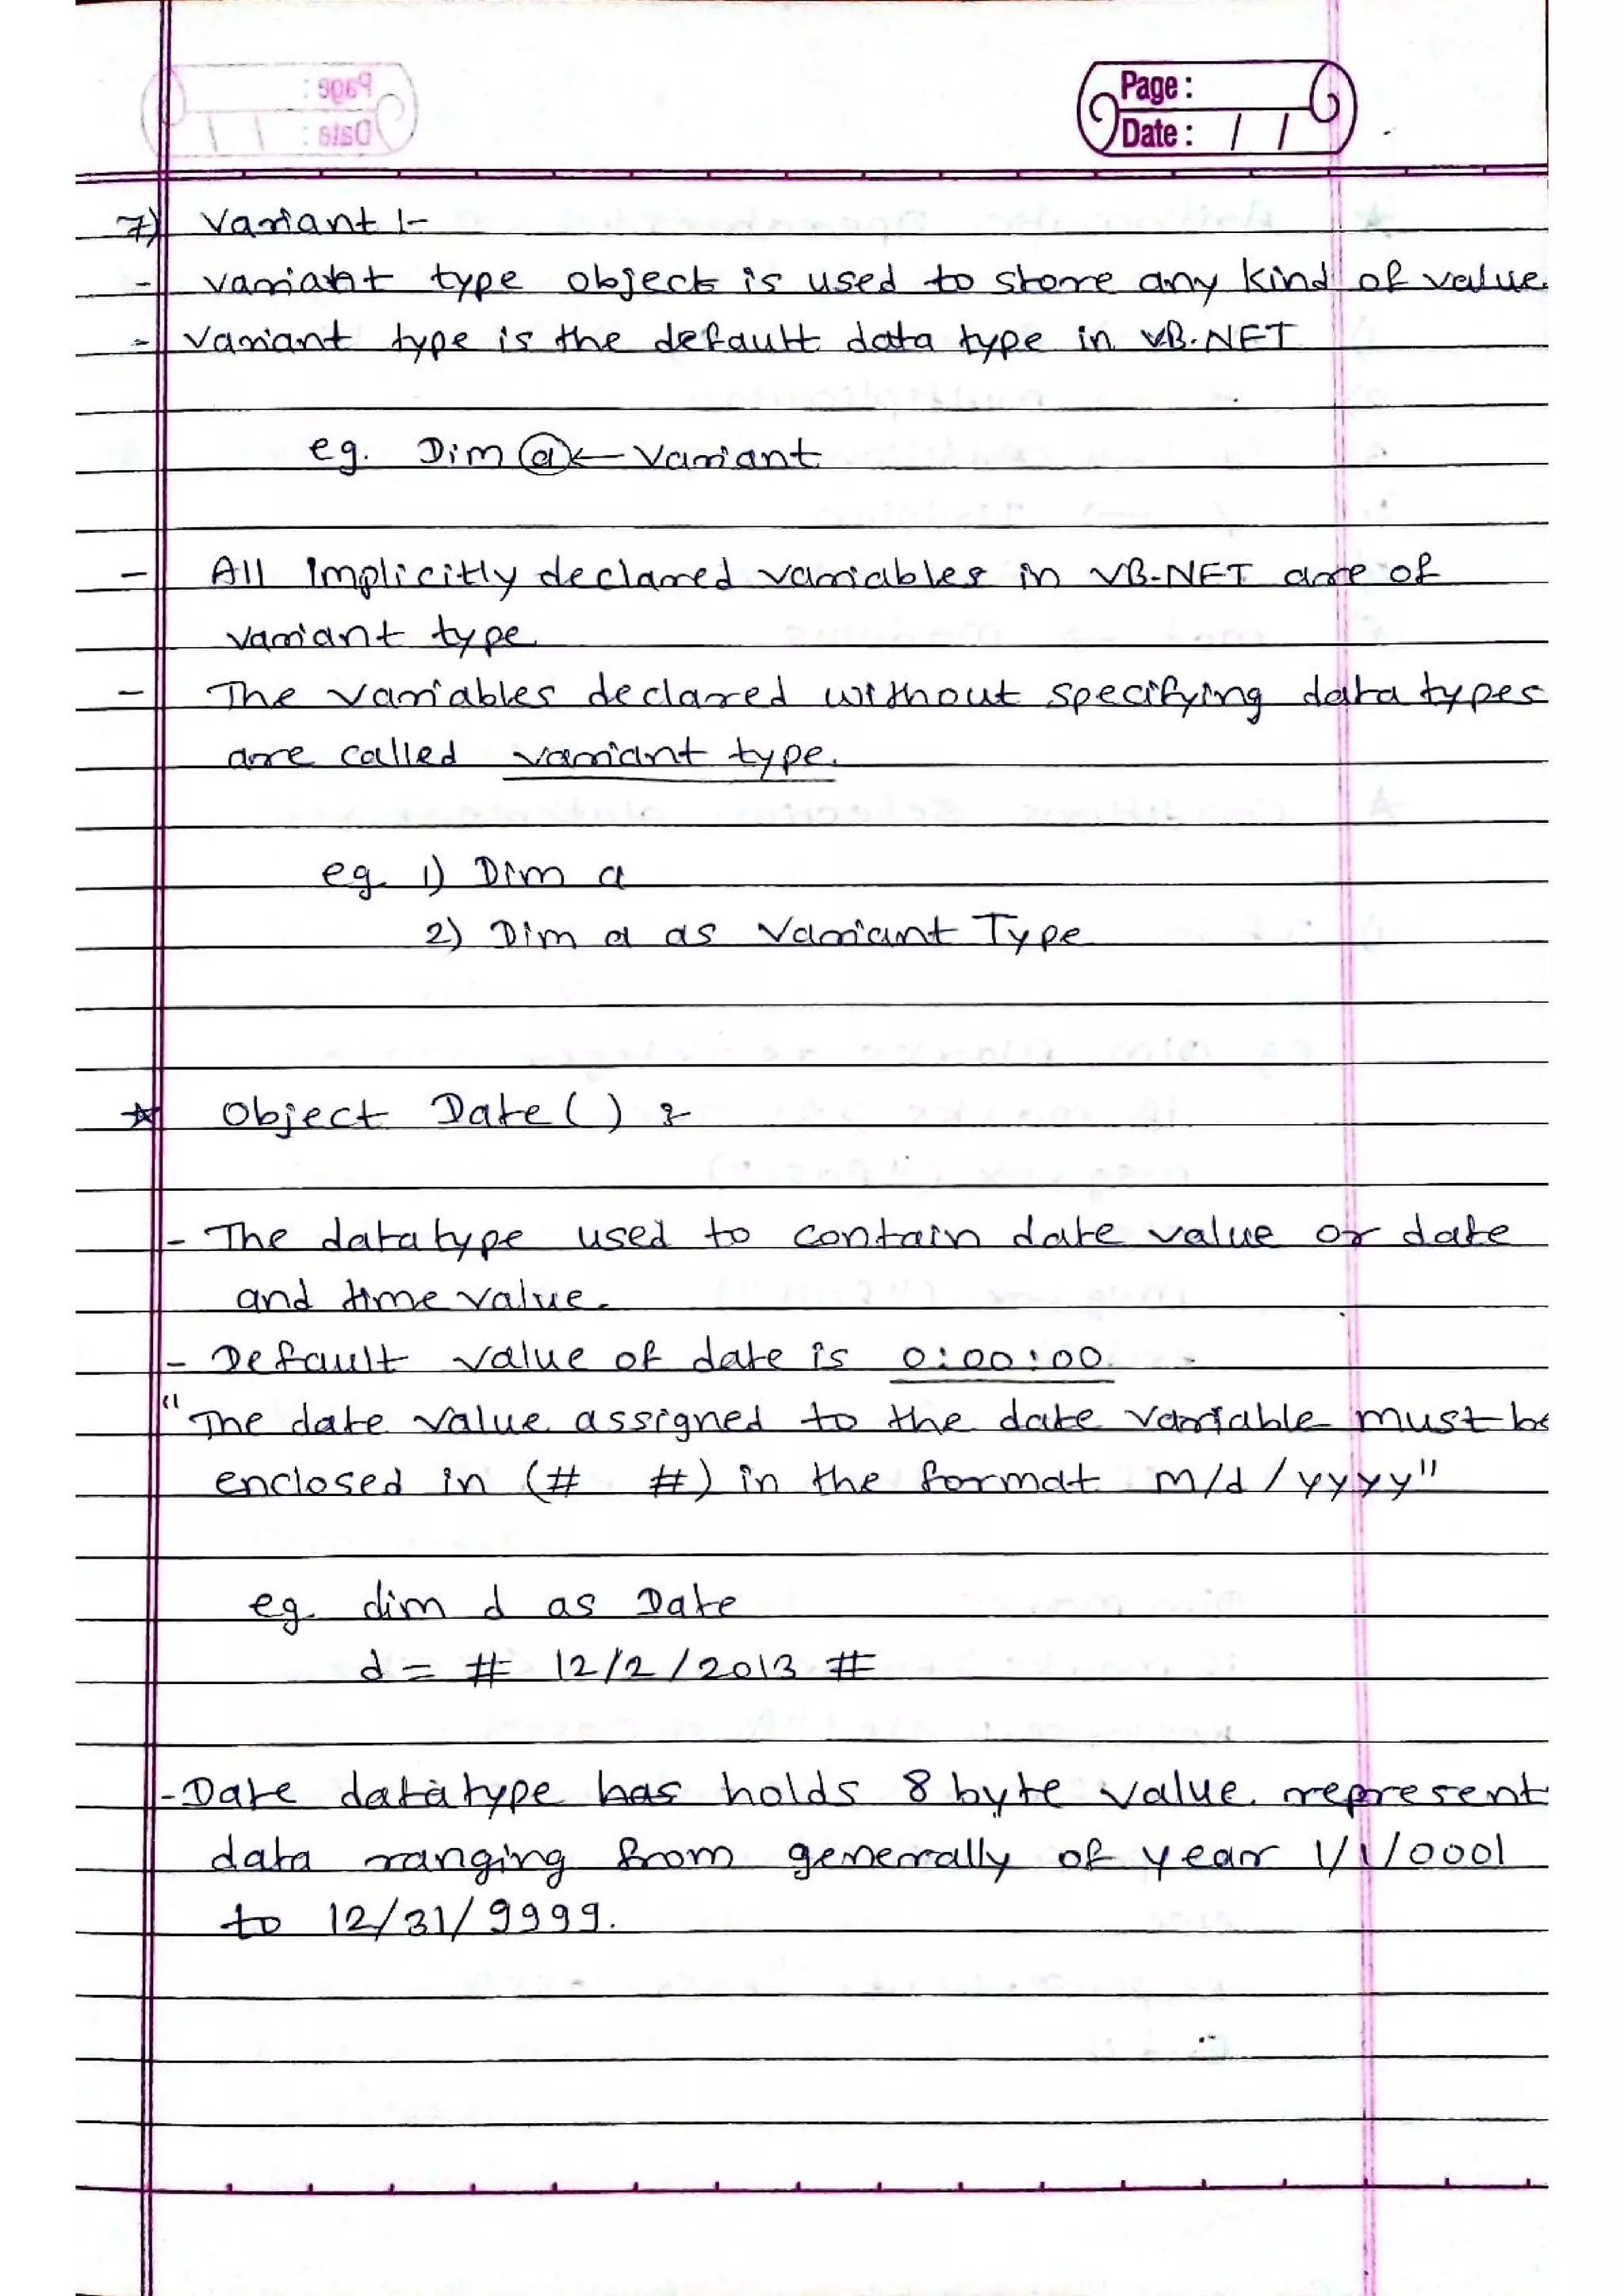 Page :
Date : / /
7) Variant :-
- variant type object is used to store any kind of value.
- variant type is the default data type in VB.NET
eg. Dim a ← Variant
- All Implicitly declared variables in VB.NET are of
variant type
- The variables declared without specifying data types
are called variant type.
eg. 1) Dim a
2) Dim a as Variant Type
☆ Object Date ( ) :-
- The datatype used to contain date value or date
and time value.
- Default value of date is 0:00:00.
"The date value assigned to the date variable must be
enclosed in (# #) in the format m/d/yyyy"
eg. dim d as Date
d = # 12/2/2013 #
- Date datatype has holds 8 byte value represent
data ranging from generally of year 1/1/0001
to 12/31/9999.